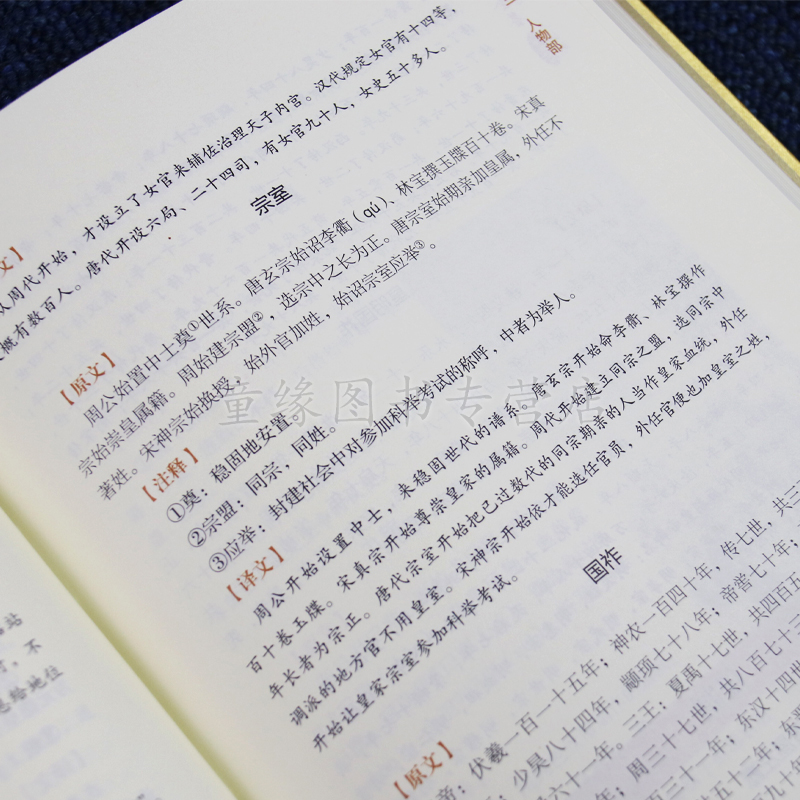 人物部
文】
从周代开始，才设立了女官来辅佐治理天子内宫。汉代规定女官有十四等，
概有数百人。唐代开设六局、二十四司，有女官九十人，女史五十多人。
宗室
【原文】
周公始置中士奠①世系。唐玄宗始诏李衢（qú）、林宝撰玉牒百十卷。宋真
宗始崇皇属籍。周始建宗盟②，选宗中之长为正。唐宗室始期亲加皇属，外任不
著姓。宋神宗始换授，始外官加姓，始诏宗室应举③。
【注释】
①奠：稳固地安置。
②宗盟：同宗，同姓。
③应举：封建社会中对参加科举考试的称呼，中者为举人。
【译文】
周公开始设置中士，来稳固世代的谱系。唐玄宗开始命李衢、林宝撰作
百十卷玉牒。宋真宗开始尊崇皇家的属籍。周代开始建立同宗之盟，选同宗中
年长者为宗正。唐代宗室开始把已过数代的同宗期亲的人当作皇家血统，外任
调派的地方官不用皇室。宋神宗开始依才能选任官员，外任官使也加皇室之姓，
开始让皇家宗室参加科举考试。
国祚
【原文】
帝：伏羲一百一十五年；神农一百四十年，传七世，共三
；少昊八十四年，颛顼七十八年；帝喾七十年；
六十一年。三王：夏禹十七世，共四百五
年；周三十七世，共八百七十三
三十一年；东汉十四世
五十二年；东晋
九十年
站
官，不
思给地位
童缘图书专营店